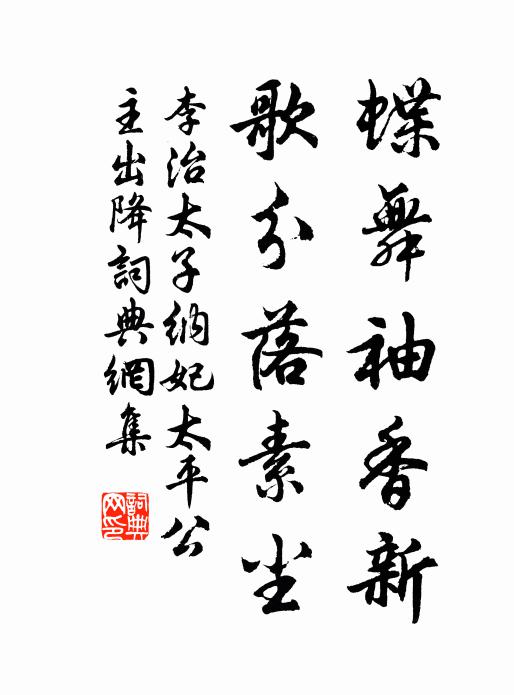 蝶舞袖香新
歌分落素尘
李治太子纳妃太平公
主出降詞典網集
詞典
网印